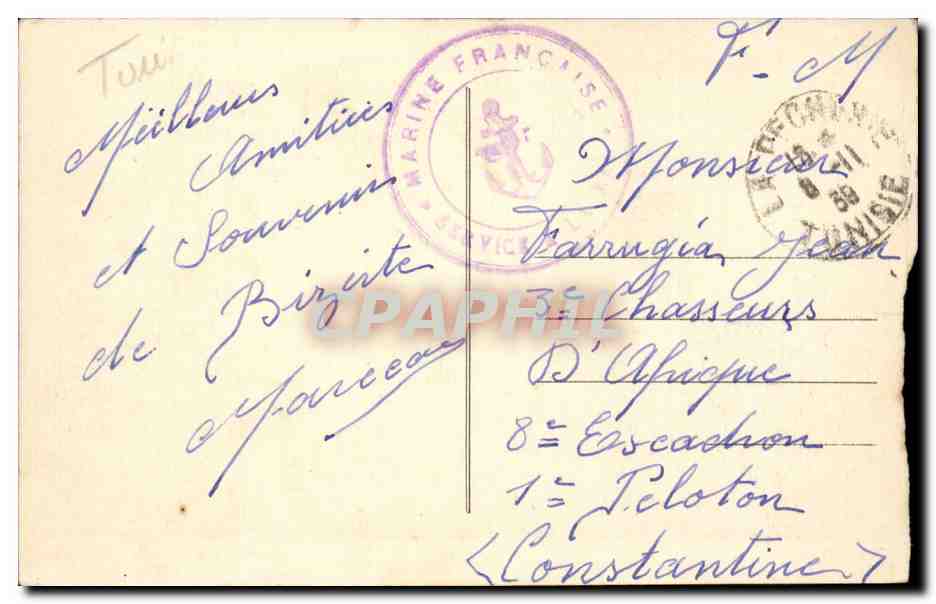 Tuni
Meilleurs
Amitiés
et Souvenir
de Bizerte
Marceau
MARINE FRANÇAISE
SERVICE À LA
F. M
LA PECHERIE
15 *
8 -11
39
TUNISIE
Monsieur
Farrugia Jean
3e Chasseurs
D'Afrique
8e Escadron
1e Peloton
(Constantine)
CPAPHIL